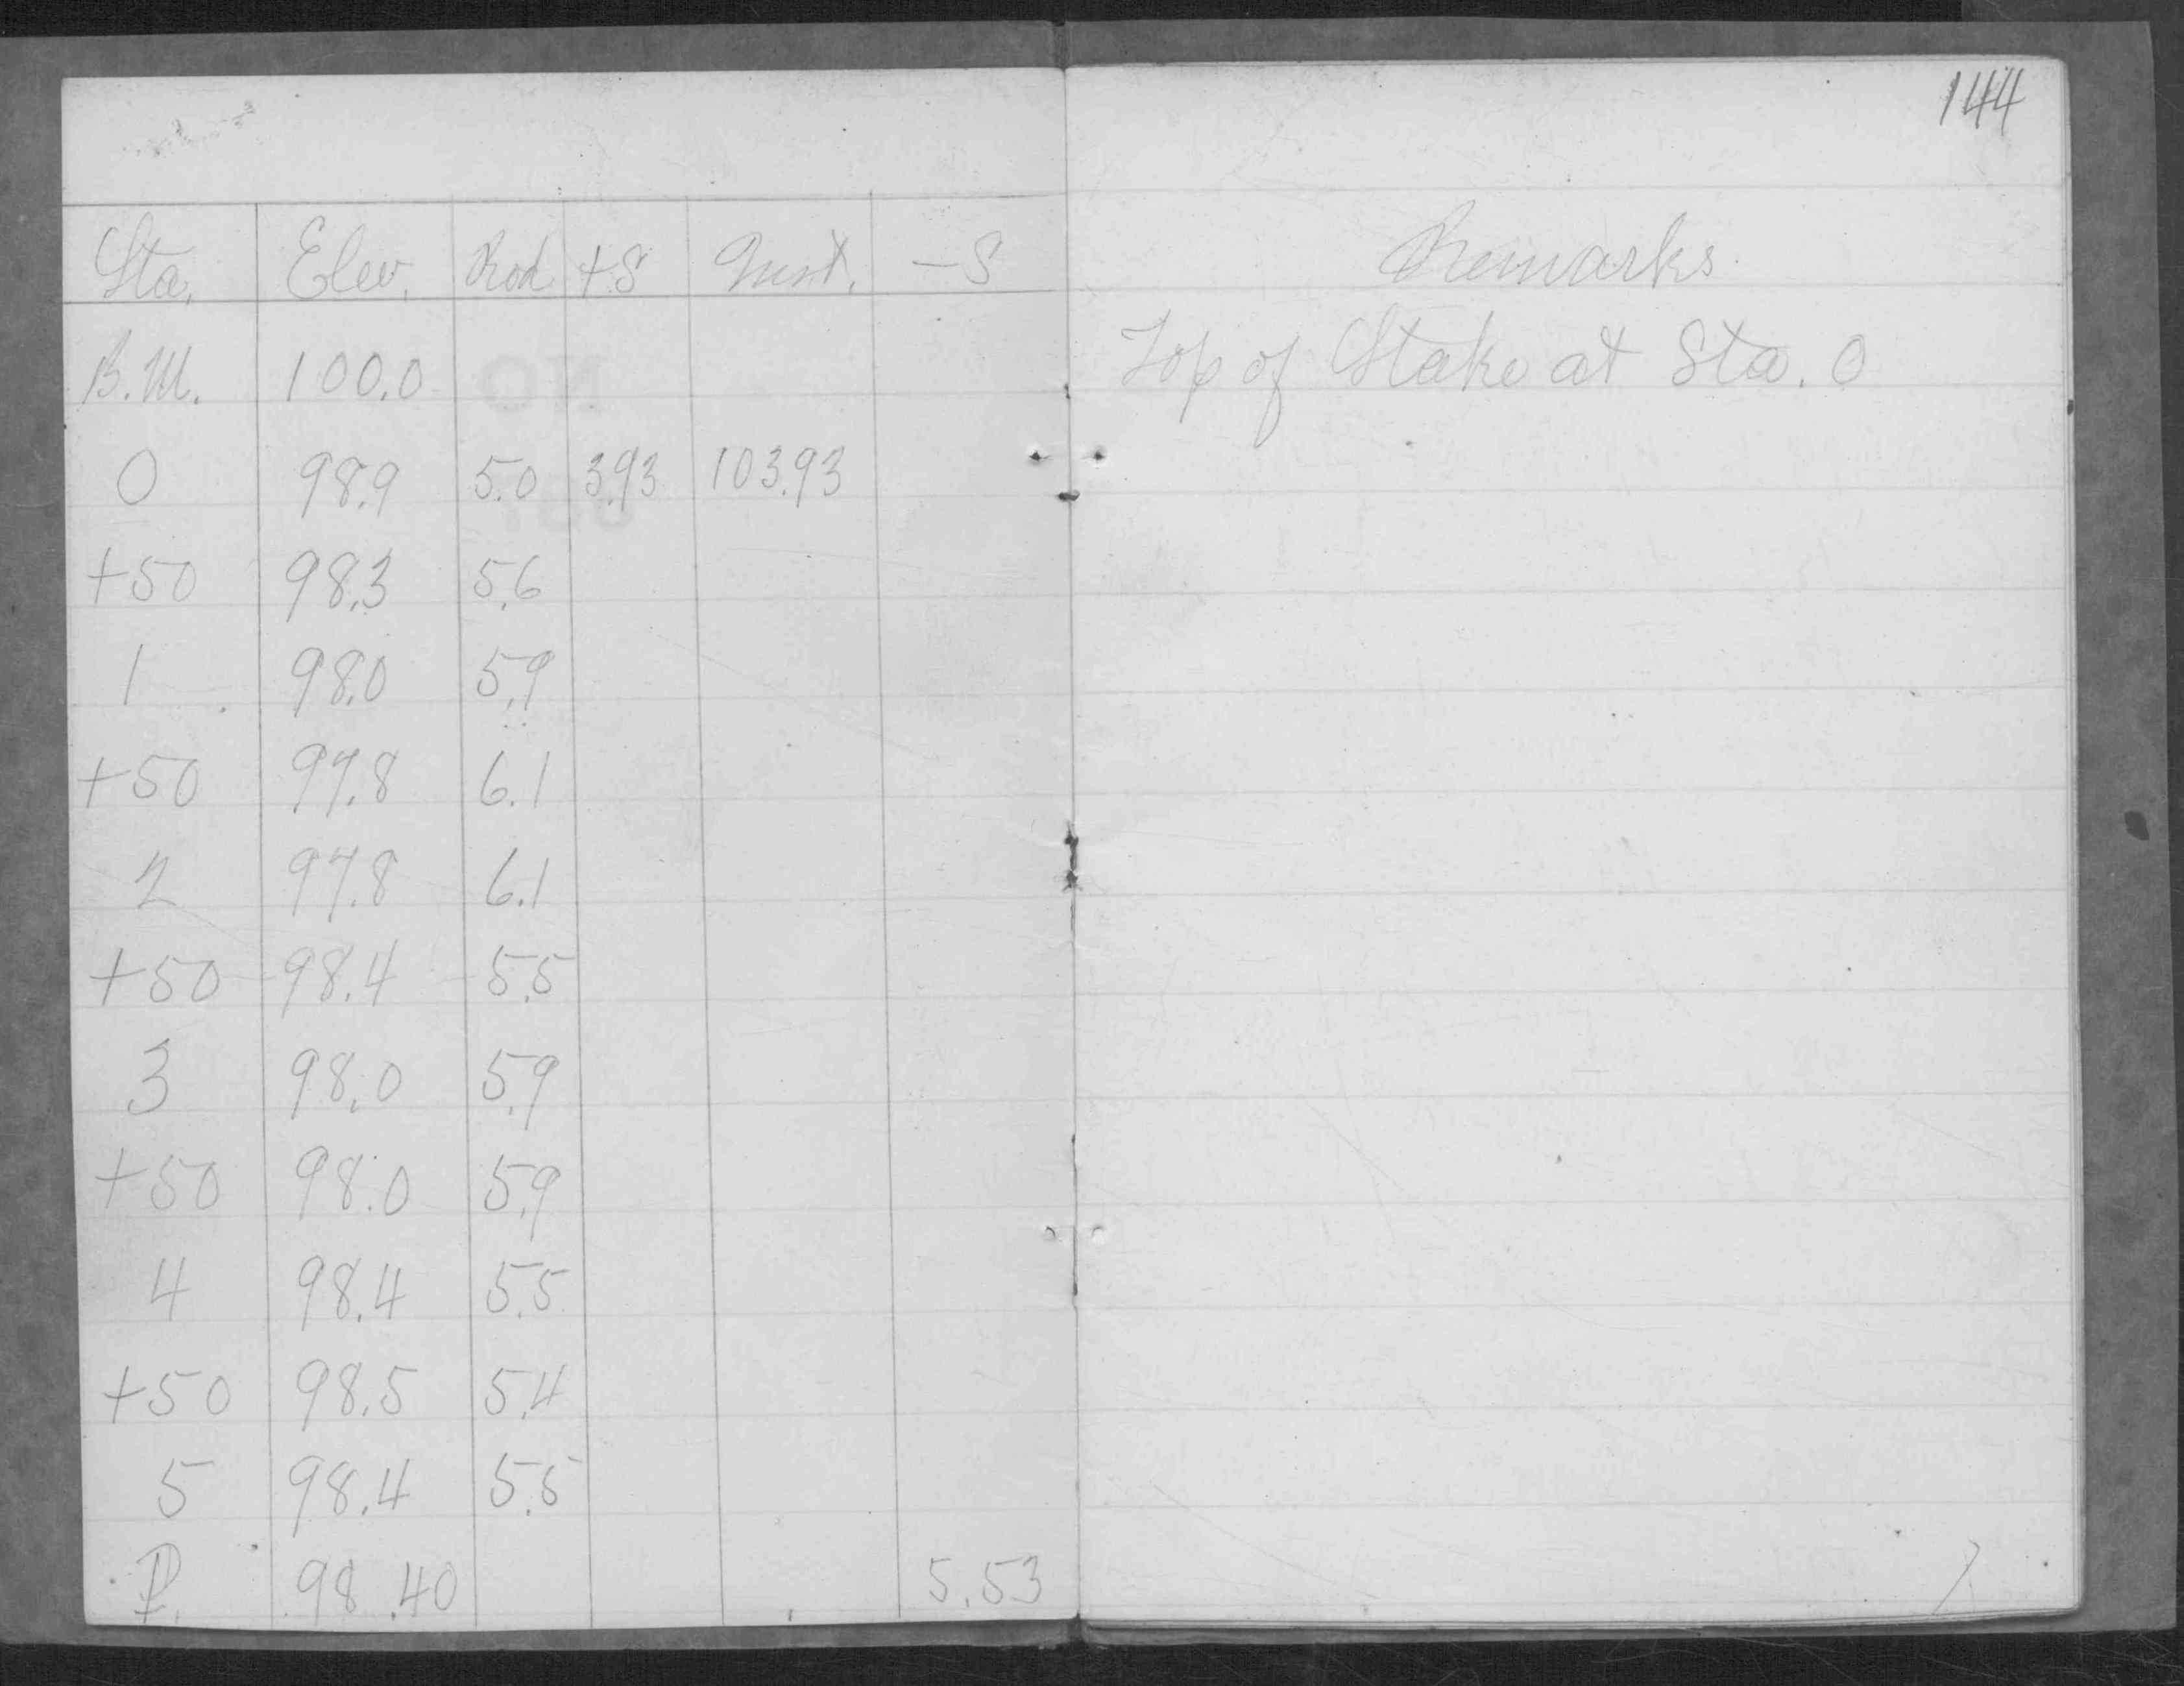 144
Sta. Elev. Rod +S Inst. -S Remarks
B.M. 100.0 Top of Stake at Sta. 0
0 98.9 5.0 3.93 103.93
+50 98.3 5.6
1 98.0 5.9
+50 97.8 6.1
2 97.8 6.1
+50 98.4 5.5
3 98.0 5.9
+50 98.0 5.9
4 98.4 5.5
+50 98.5 5.4
5 98.4 5.5
P. 98.40 5.53